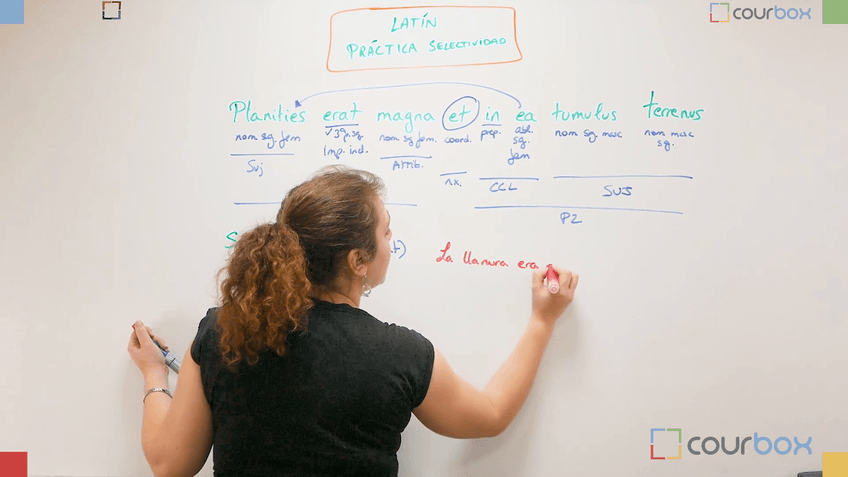 courbox
LATÍN
PRÁCTICA SELECTIVIDAD
Planities erat magna et in ea tumulus terrenus
nom sg. fem √3ª p. sg. nom sg. fem. coord. prep. abl. nom sg. masc nom masc
Imp. ind. sg. sg.
fem
Suj Atrib. nx. CCL SUJ
P2
La llanura era
courbox